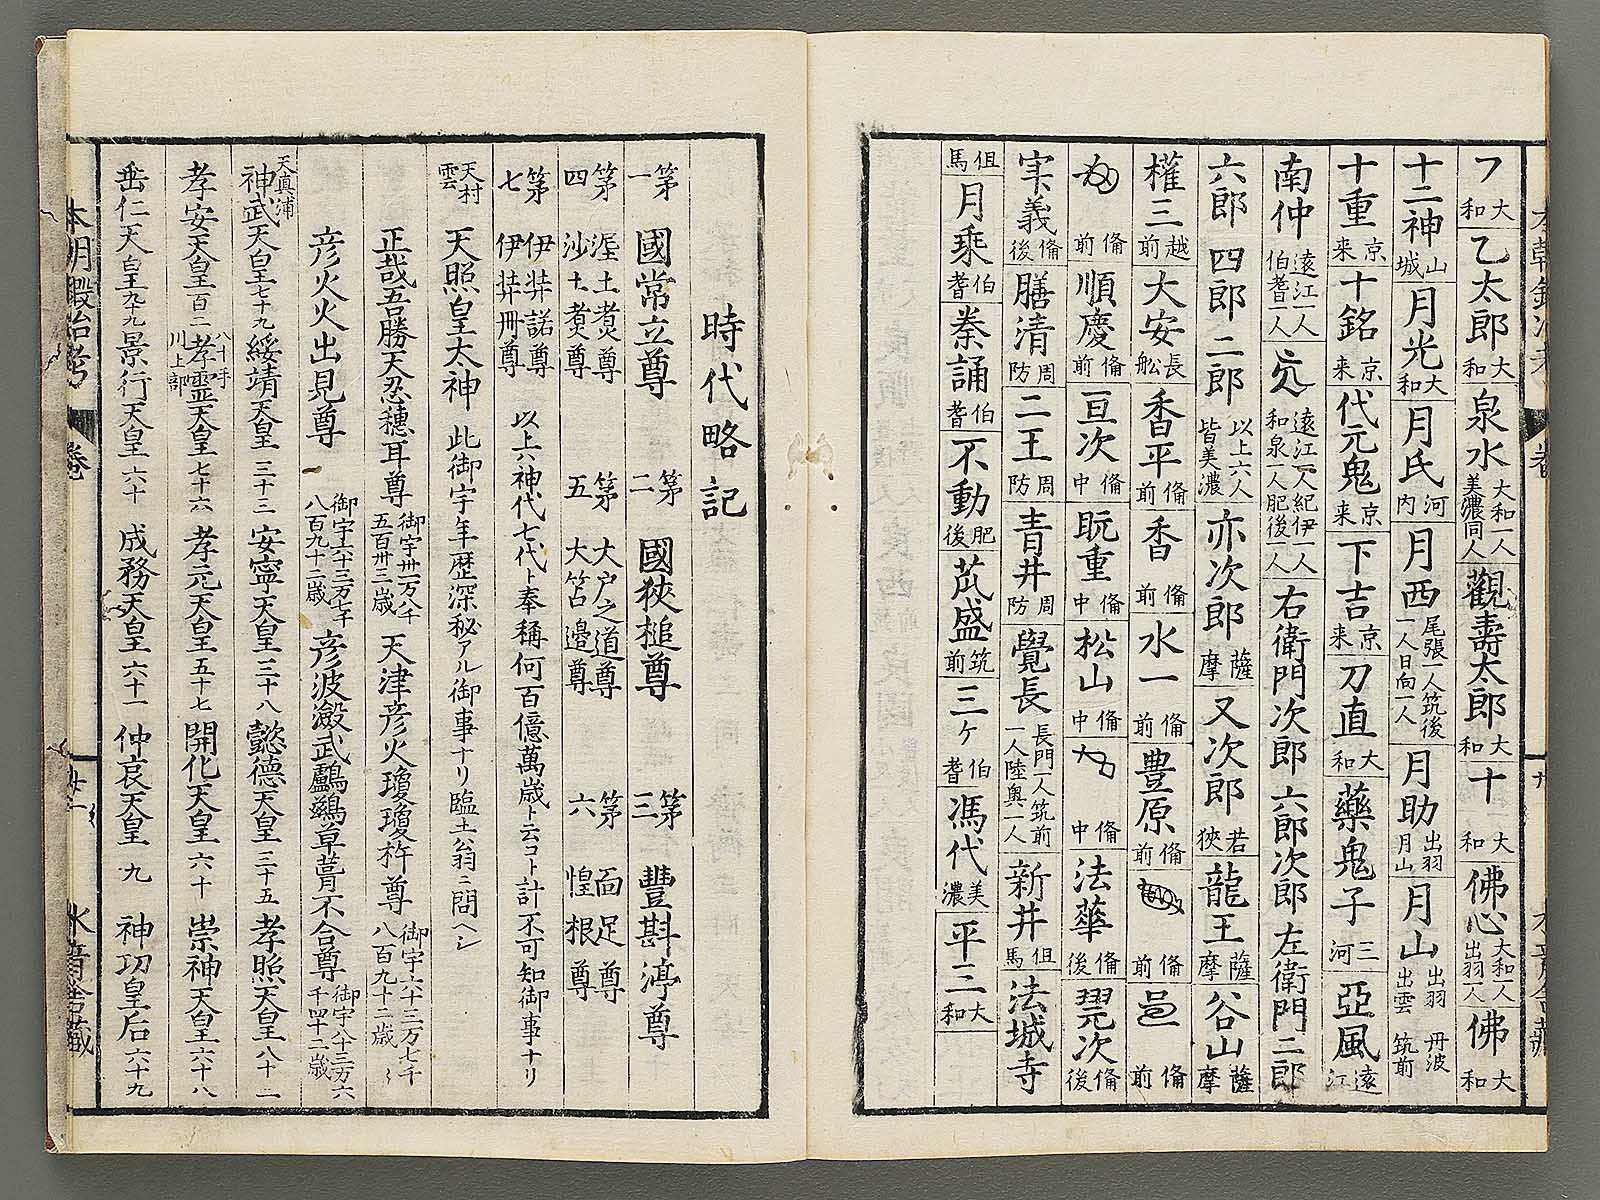 フ 大和 乙太郎 大和 泉水 大和一人美濃同人 觀壽太郎 大和 十 大和 佛心 大和一人出羽一人 佛 大和
十二神 山城 月光 大和 月氏 河内 月西 尾張一人筑後一人日向一人 月助 出羽月山 月山 出羽 丹波 出雲 筑前
十重 京来 十銘 京来 代元鬼 京来 下吉 京来 刀直 大和 藥鬼子 三河 亞風 遠江
南仲 遠江一人伯耆一人 遠江一人紀伊一人和泉一人肥後一人 右衛門次郎 六郎次郎 左衛門二郎
六郎 四郎 二郎 以上六人皆美濃 亦次郎 薩摩 又次郎 若狭 龍王 薩摩 谷山 薩摩
權三 越前 大安 長舩 香平 俻前 香 俻前 水一 俻前 豊原 俻前 俻前 邑 俻前
俻前 順慶 俻前 亘次 俻中 翫重 俻中 松山 俻中 俻中 法華 俻後 翌次 俻後
義 俻後 膳清 周防 二王 周防 青井 周防 覺長 長門一人筑前一人陸奥一人 新井 但馬 法城寺
但馬 月乗 伯耆 誦 伯耆 不動 肥後 盛 筑前 三ヶ 伯耆 馮代 美濃 平三 大和
時代略記
第一 國常立尊 第二 國狹槌尊 第三 豐斟渟尊
第四 渥土煑尊 沙土煑尊 第五 大户之道尊 大笘邉尊 第六 面足尊 惶根尊
第七 伊弉諾尊 伊弉冊尊 以上六神代七代ト奉稱何百億萬歳ト云コト計不可知御事ナリ
天村雲 天照皇太神 此御宇年歴深秘アル御事ナリ臨土翁ニ問ヘシ
正哉吾勝天忍穗耳尊 御宇卅一万八千五百卅三歳 天津彦火瓊瓊杵尊 御宇六十三万七千八百九十二歳
彦火火出見尊 御宇六十三万七千八百九十二歳 彦波瀲武鸕鷀草葺不合尊 御宇八十三万六千四十二歳
天真浦 神武天皇七十九 綏靖天皇三十三 安寧天皇三十八 懿德天皇三十五 孝照天皇八十二
孝安天皇百二 八十手川上部 孝靈天皇七十六 孝元天皇五十七 開化天皇六十 崇神天皇六十八
垂仁天皇九十九 景行天皇六十 成務天皇六十一 仲哀天皇九 神功皇后六十九
本朝鍛冶考 卷 廿一 水音舎藏